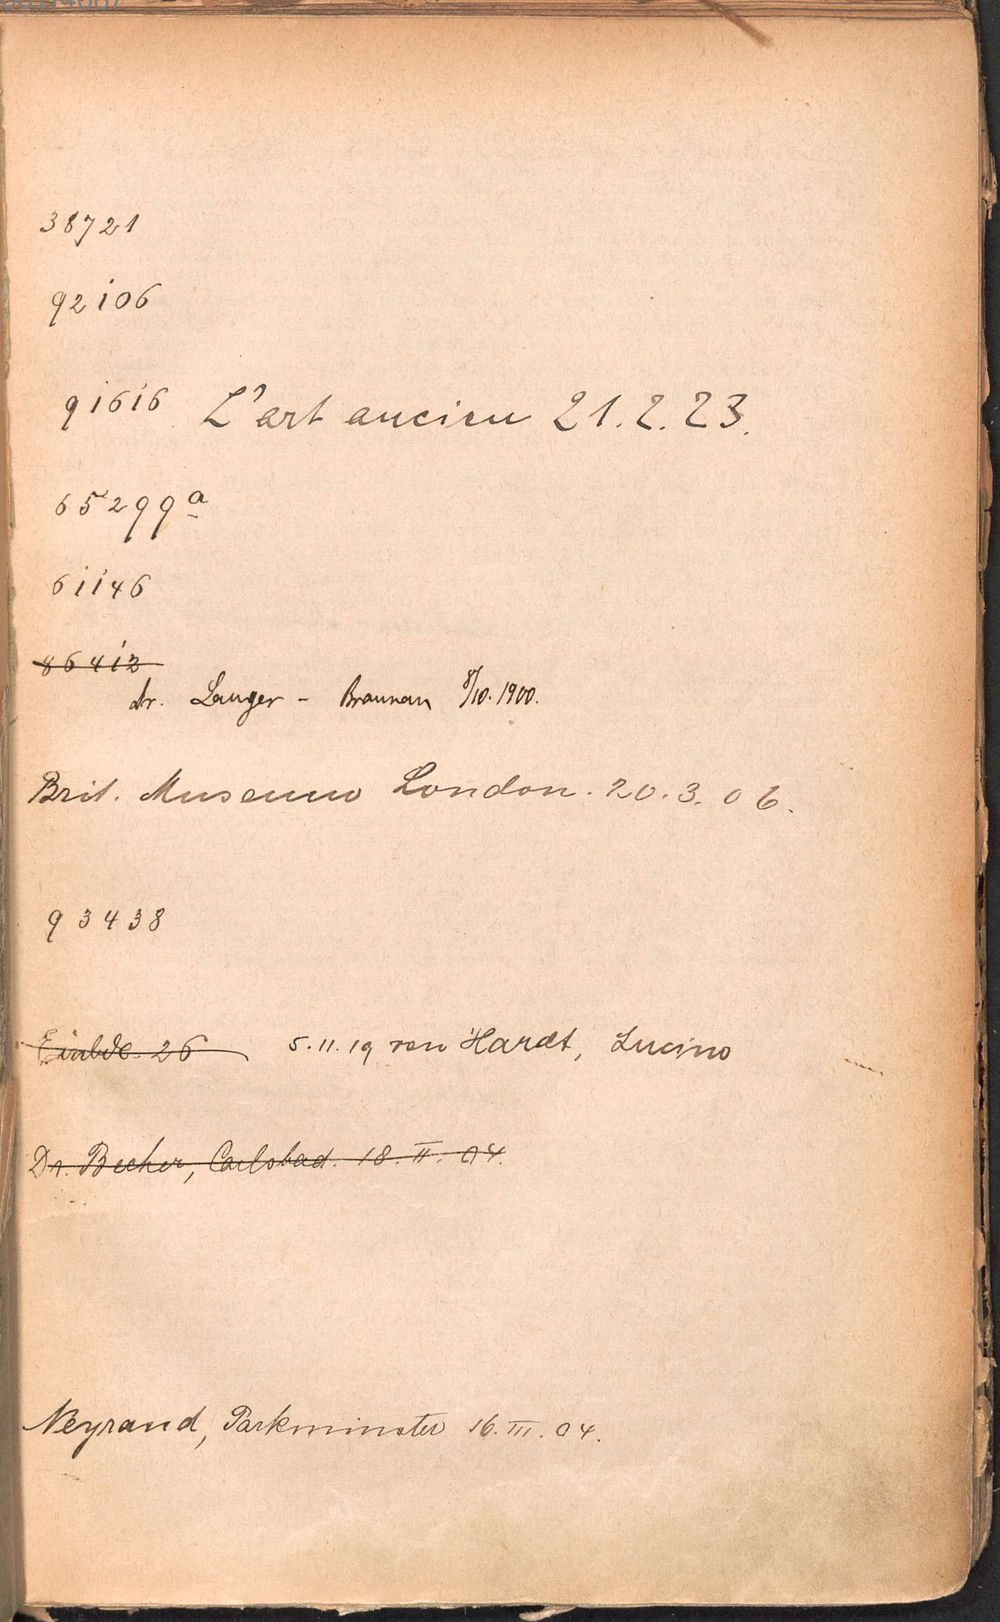 38721
92106
91616 L'art ancien 21.2.23.
65299a
61146
86412
Dr. Langer - Braunau 8/10. 1900.
Brit. Museum London. 20.3.06.
93438
Einbde 26 5.11.19 von Hardt, Lucino
Dr. Becher, Carlsbad. 18.II.04.
Neyrand, Parkminster 16.III.04.